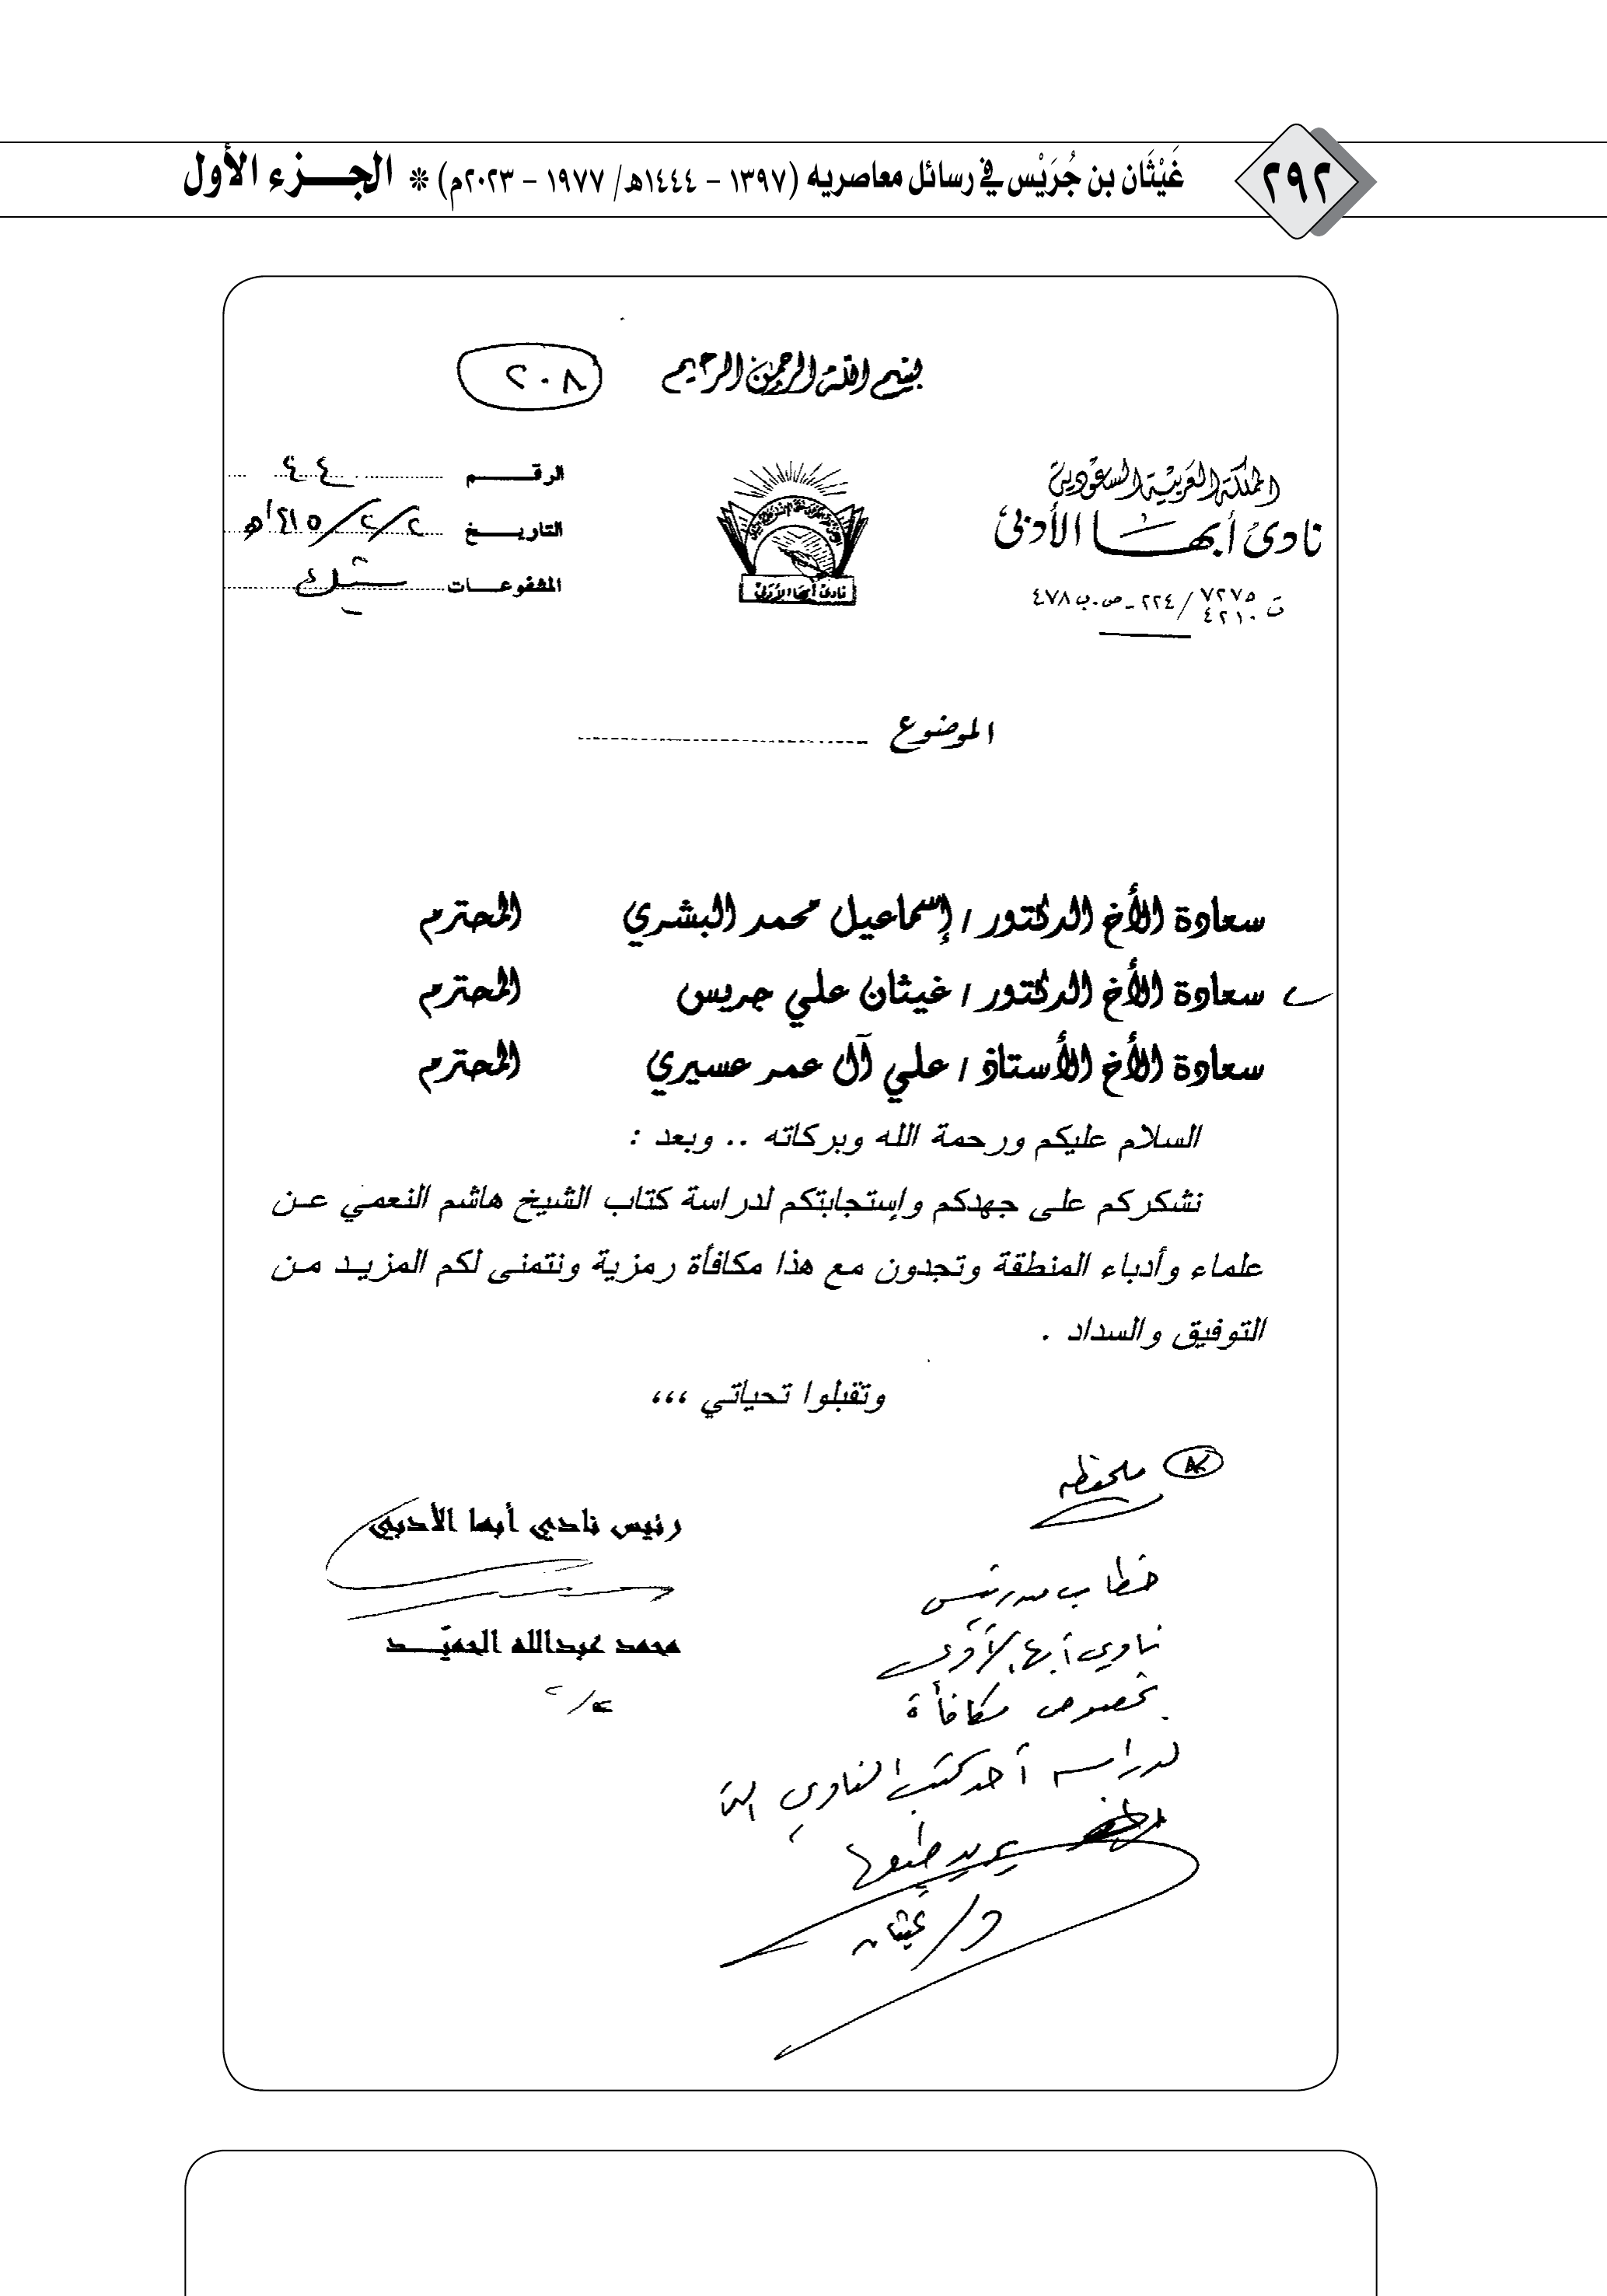 ٢٩٢
غَيْثَان بن جُرَيْس في رسائل معاصريه (١٣٩٧ - ١٤٤٤هـ/ ١٩٧٧ - ٢٠٢٣م) * الجـــزء الأول
بسم الله الرحمن الرحيم
٢٠٨
المملكة العربية السعودية
نادي أبها الأدبي
ت ٧٢٧٥ / ٢٢٤ - ص.ب ٤٧٨
٤٢١٠
نادي أبها الأدبي
الرقـــــم ٤٤
التاريـــخ ٢/٢/١٤١٥هـ
المشفوعـــات شيك
الموضوع
سعادة الأخ الدكتور / إسماعيل محمد البشري المحترم
سعادة الأخ الدكتور / غيثان علي جريس المحترم
سعادة الأخ الأستاذ / علي آل عمر عسيري المحترم
السلام عليكم ورحمة الله وبركاته .. وبعد :
نشكركم على جهدكم وإستجابتكم لدراسة كتاب الشيخ هاشم النعمي عـن
علماء وأدباء المنطقة وتجدون مع هذا مكافأة رمزية ونتمنى لكم المزيـد مـن
التوفيق والسداد .
وتقبلوا تحياتي ،،،
رئيس نادي أبها الأدبي
محمد عبدالله الحميّـــد
ملحوظه
خطاب من رئيس
نادي أبها الأدبي
بخصوص مكافأة
لدراسة أحد كتب النادي التي
يريد طبعها
د/ غيثان